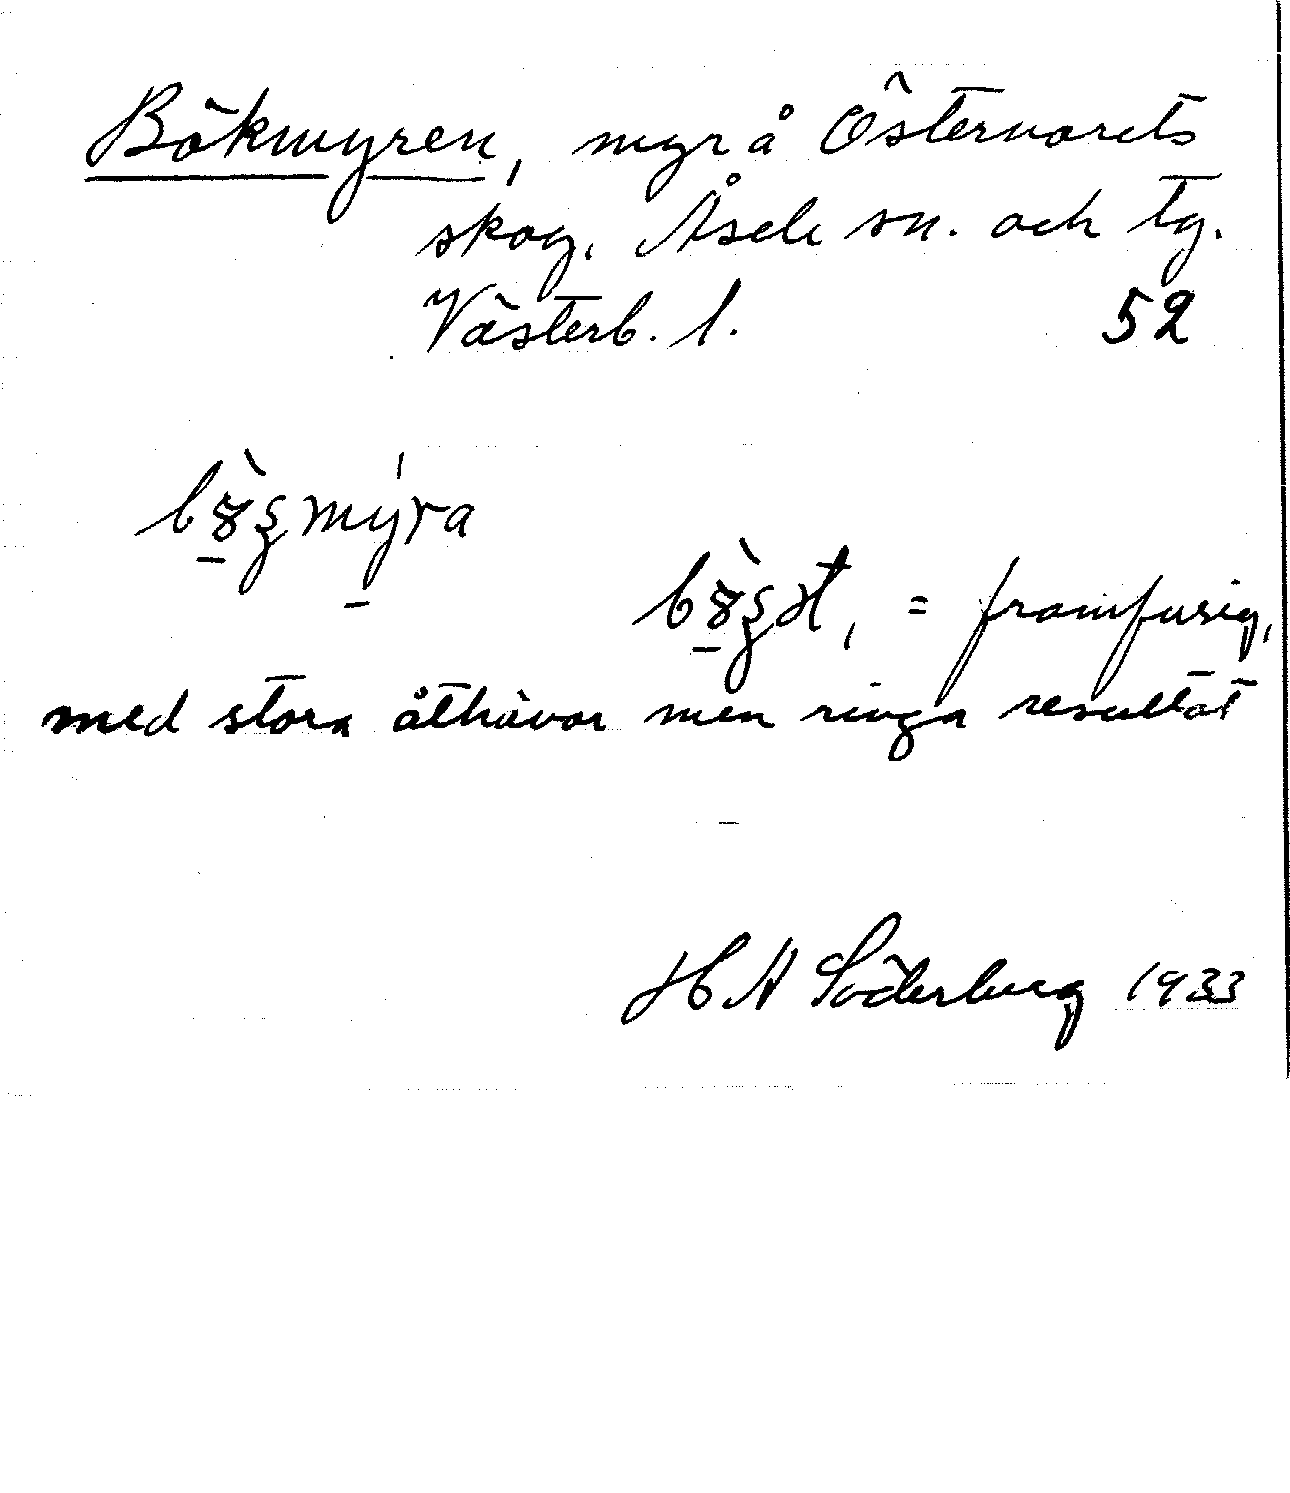 Bökmyren, myr å Östernorets
skog, Åsele sn. och tg.
Västerb. l. 52
= framfusig,
med stora åthävor men ringa resultat
H A Söderberg 1933